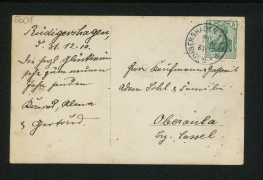 5601
Rüdigershagen
d. 31.12.10.
Die hzgl. Glückwün
sche zum neuen
Jahre senden
Konrad, Alma
u. Gertrud
Herr Kaufmann & Gastwirt
Dem Sohl & Familie
Oberaula
Bz. Cassel